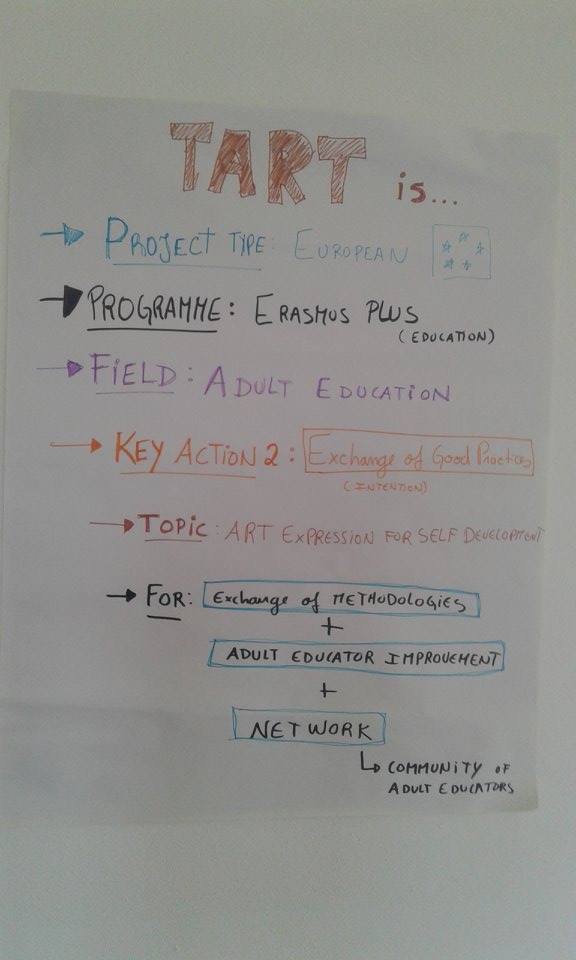 TART is...
→ PROJECT TYPE: EUROPEAN
→ PROGRAMME: ERASMUS PLUS
(EDUCATION)
→ FIELD: ADULT EDUCATION
→ KEY ACTION 2: Exchange of Good Practices
(INTENTION)
→ TOPIC: ART EXPRESSION FOR SELF DEVELOPMENT
→ FOR: Exchange of METHODOLOGIES
+
ADULT EDUCATOR IMPROVEMENT
+
NETWORK
↳ COMMUNITY OF
ADULT EDUCATORS